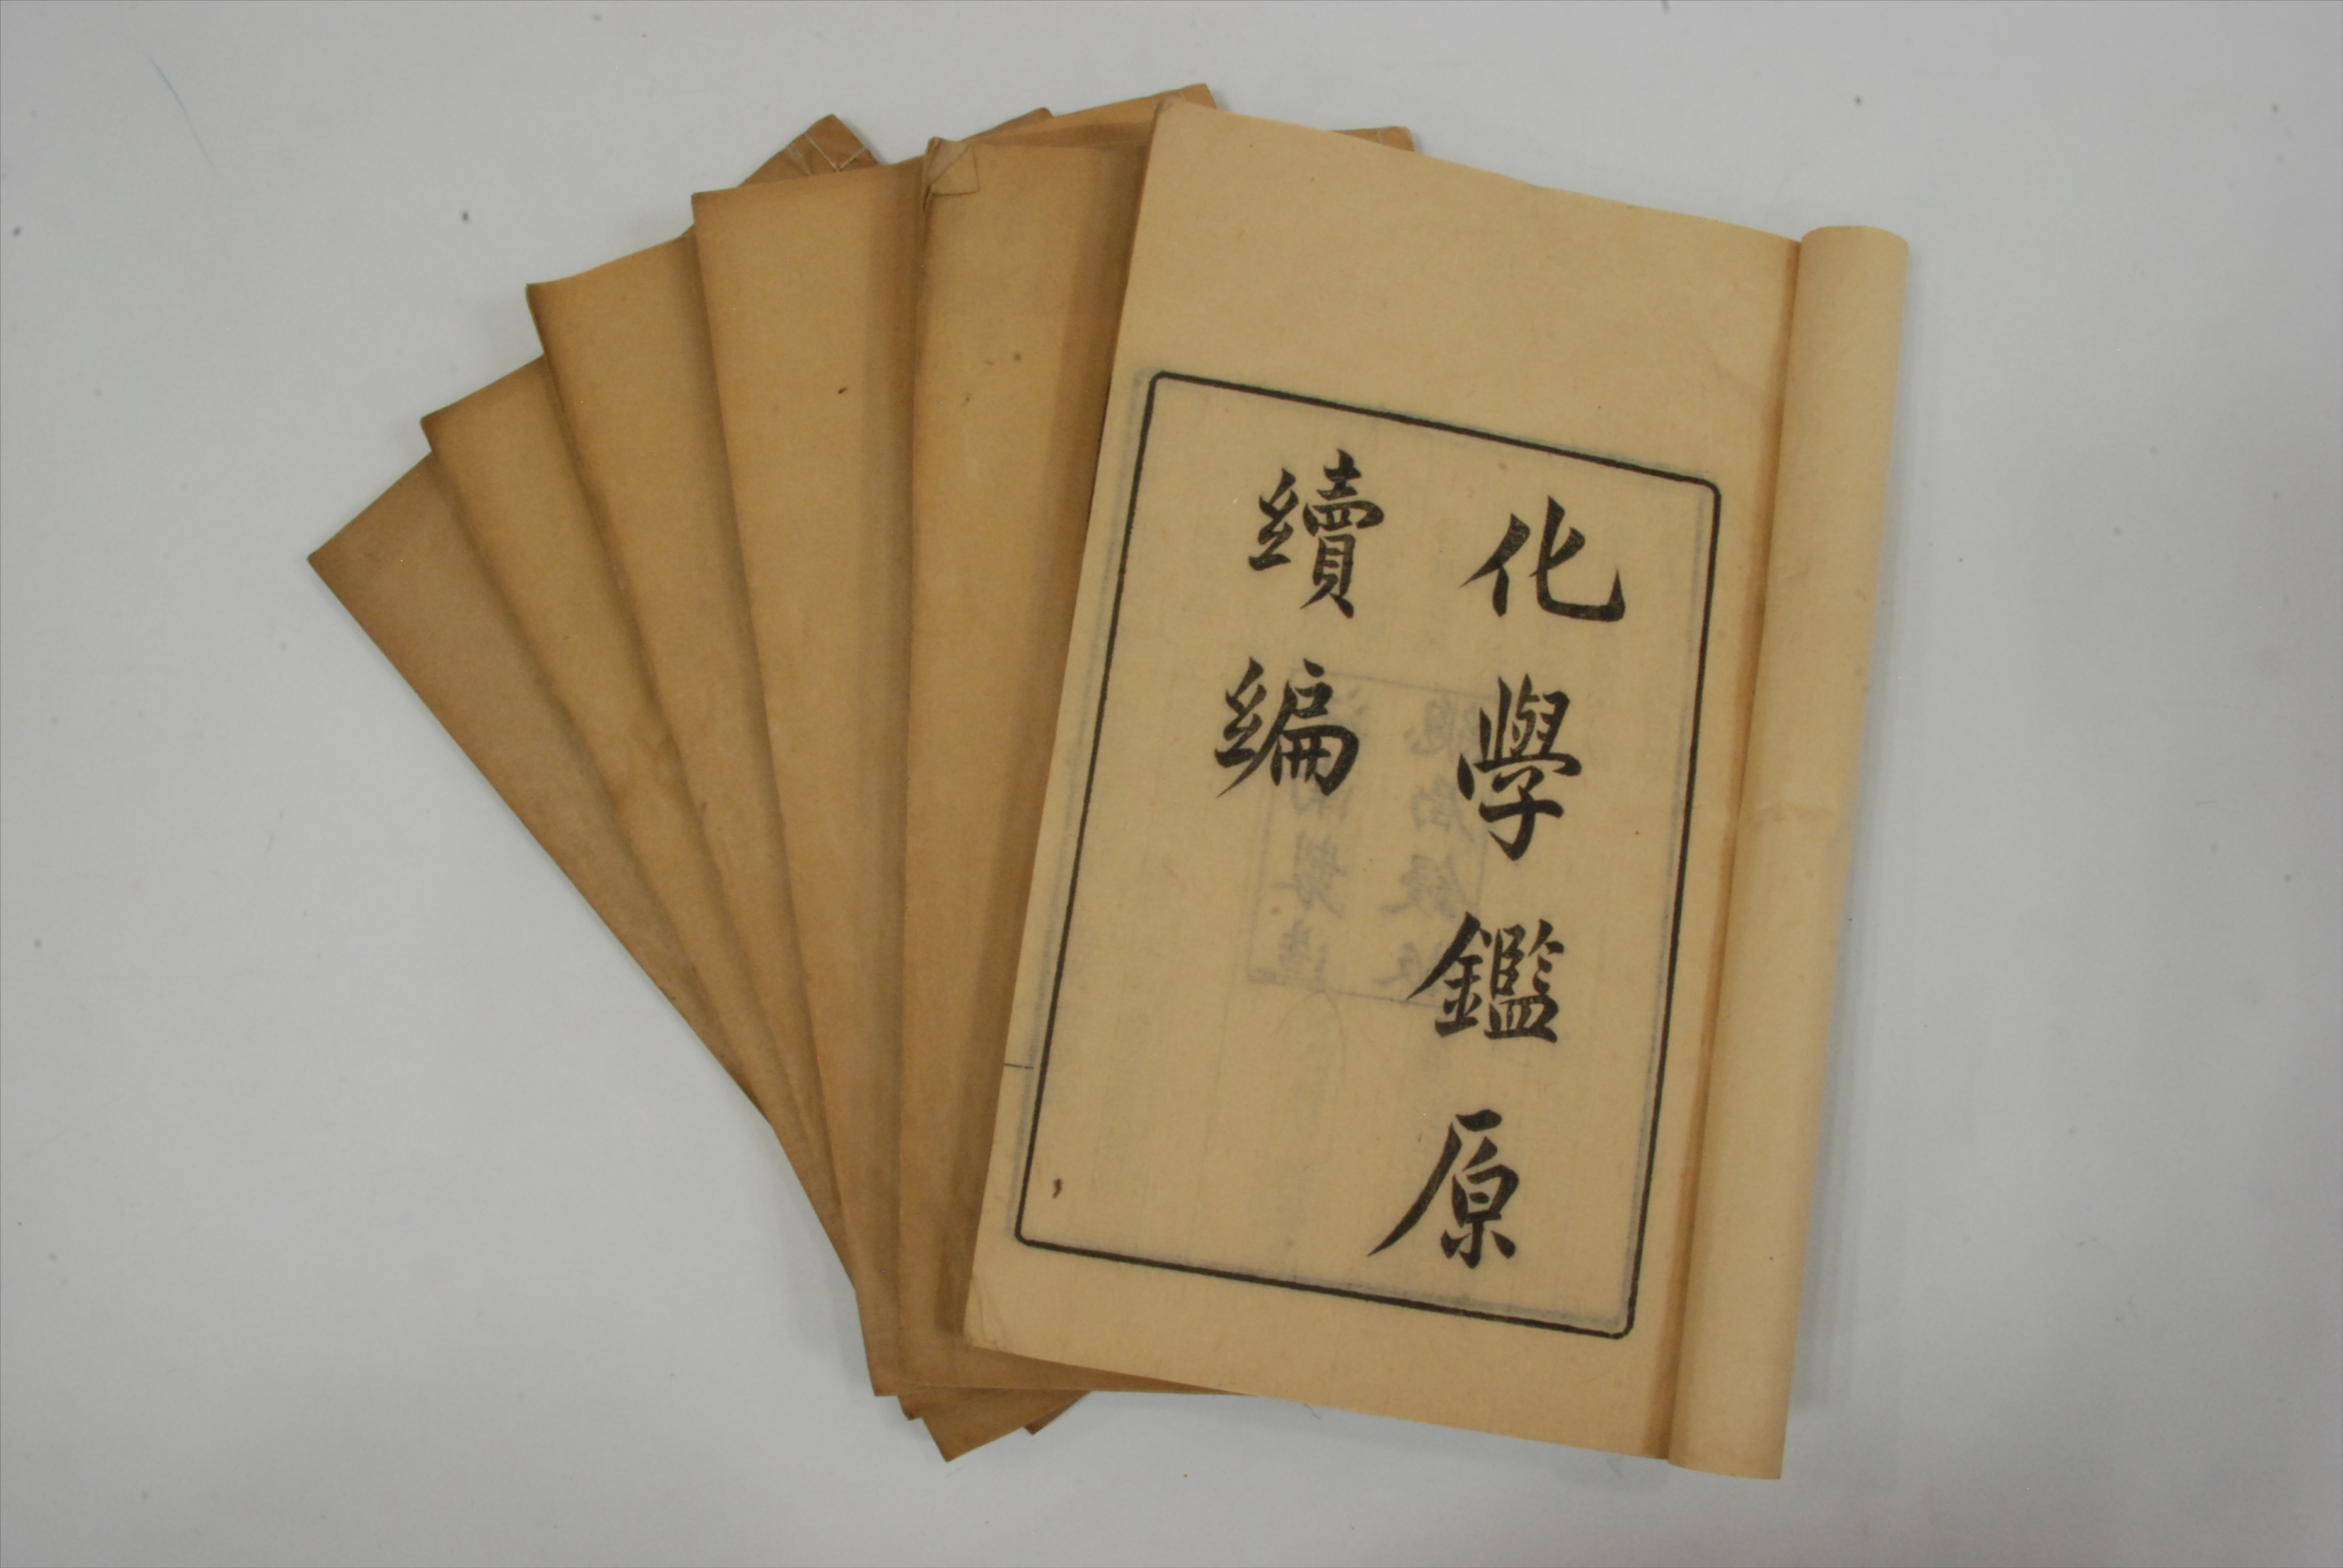 化學鑑原
續編